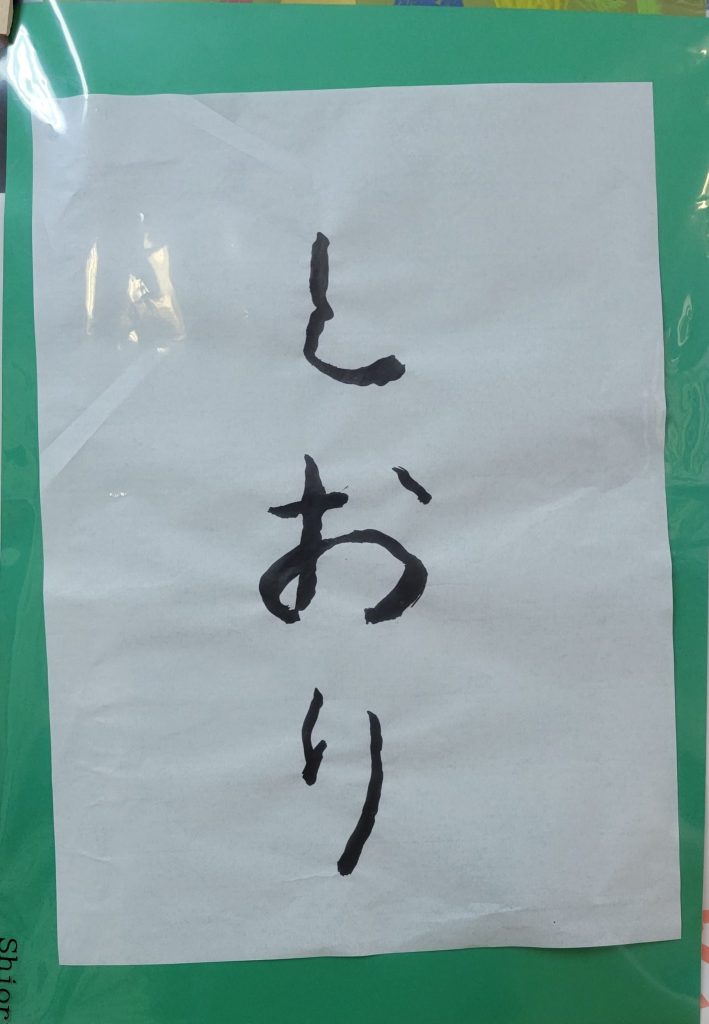 しおり
Shior